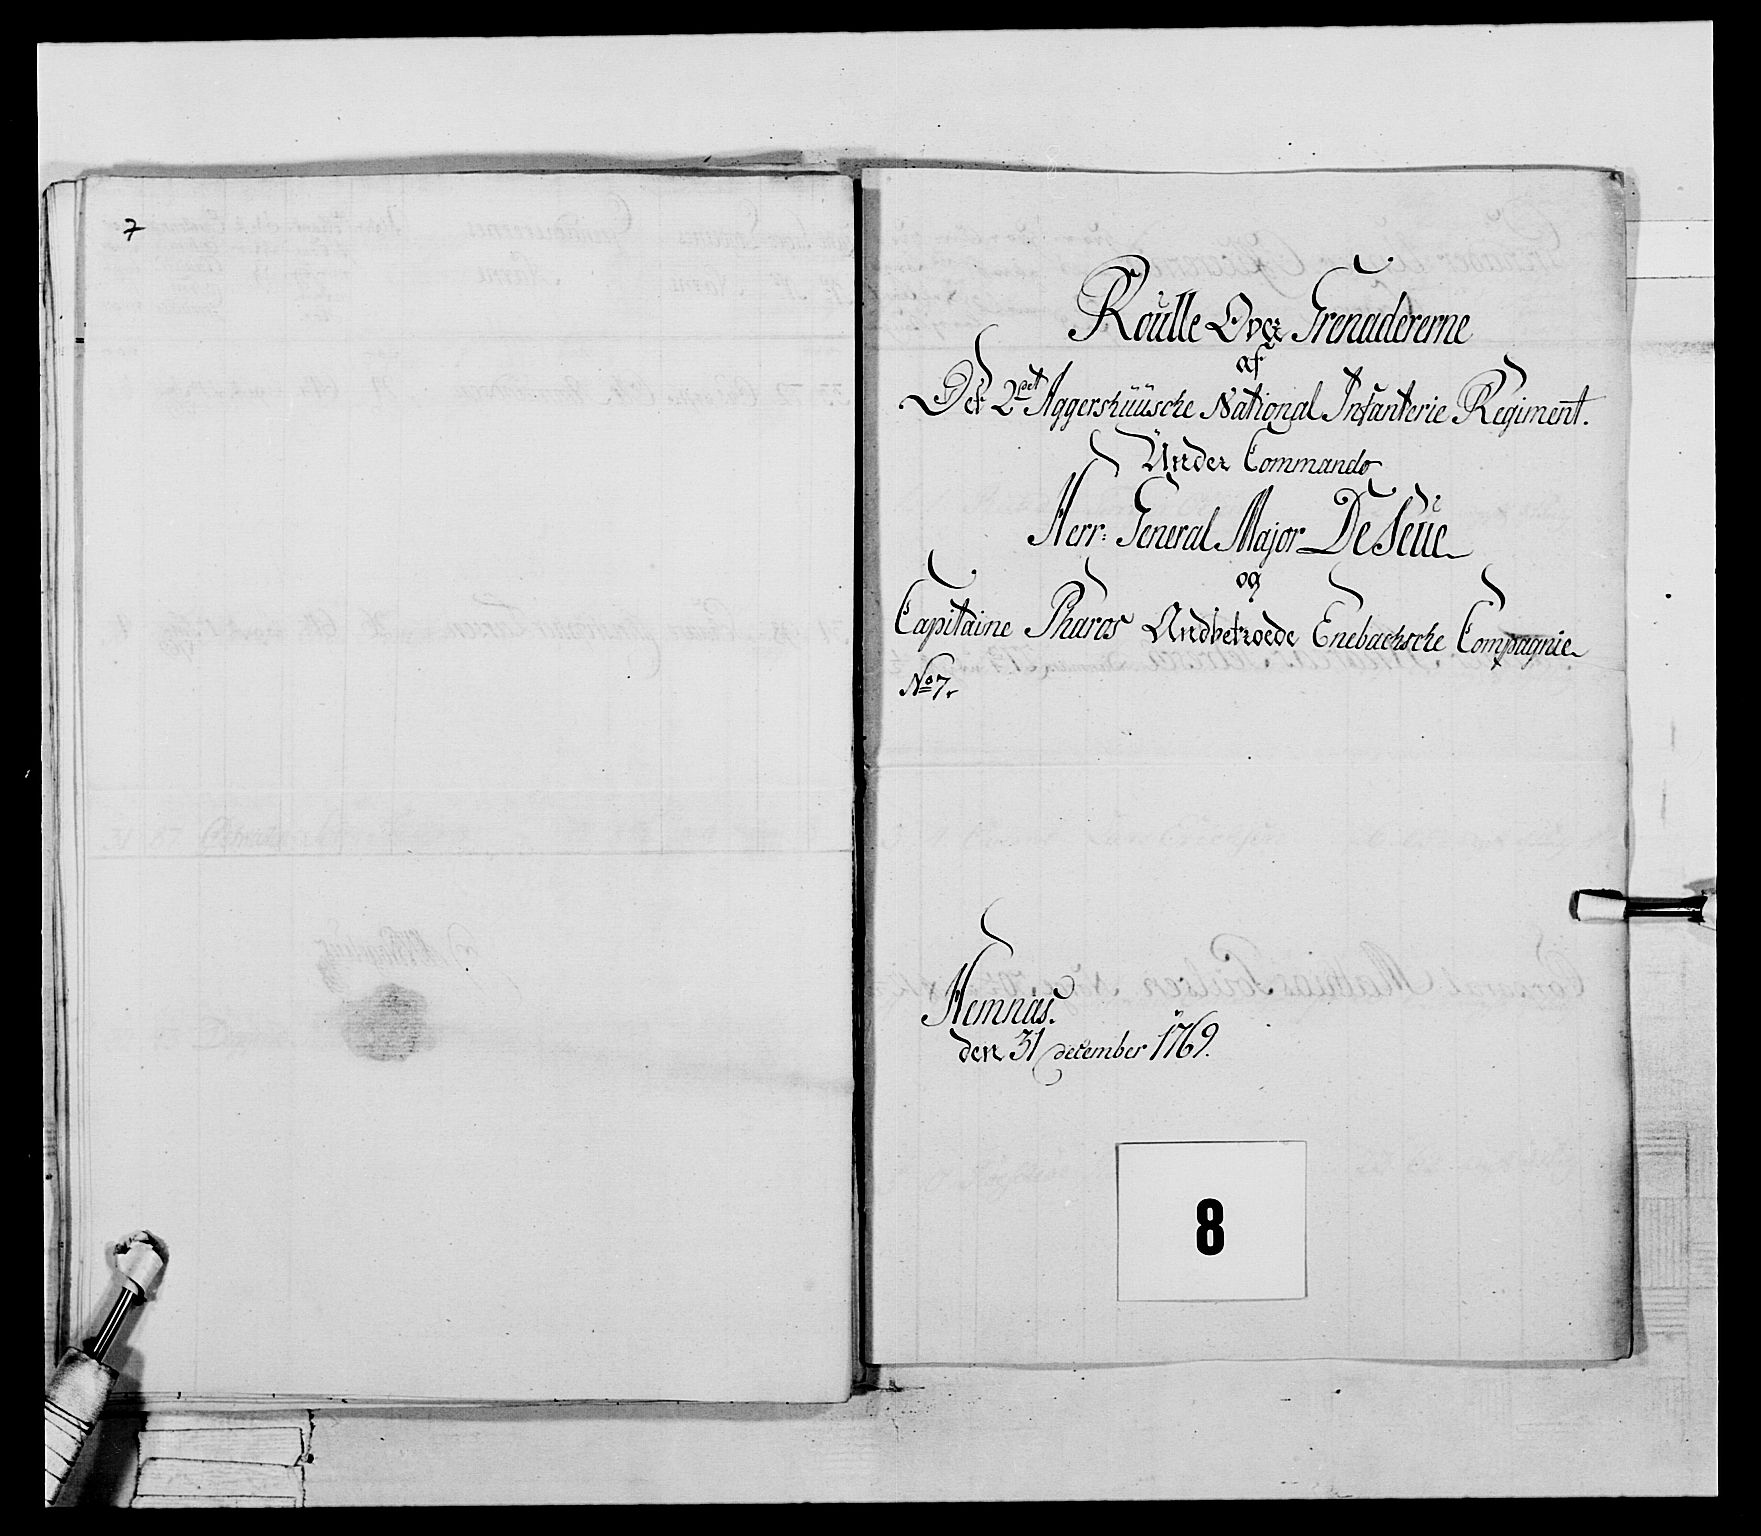 7
Roulle Over Grenadererne
af
Det 2det Aggershuusche National Infanterie Regiment.
Under Commando
Herr: General Major De Seüe
og
Capitaine Pharos Andbetroede Enebachsche Compagnie
No 7.
Hemnæs.
den 31 december 1769.
8